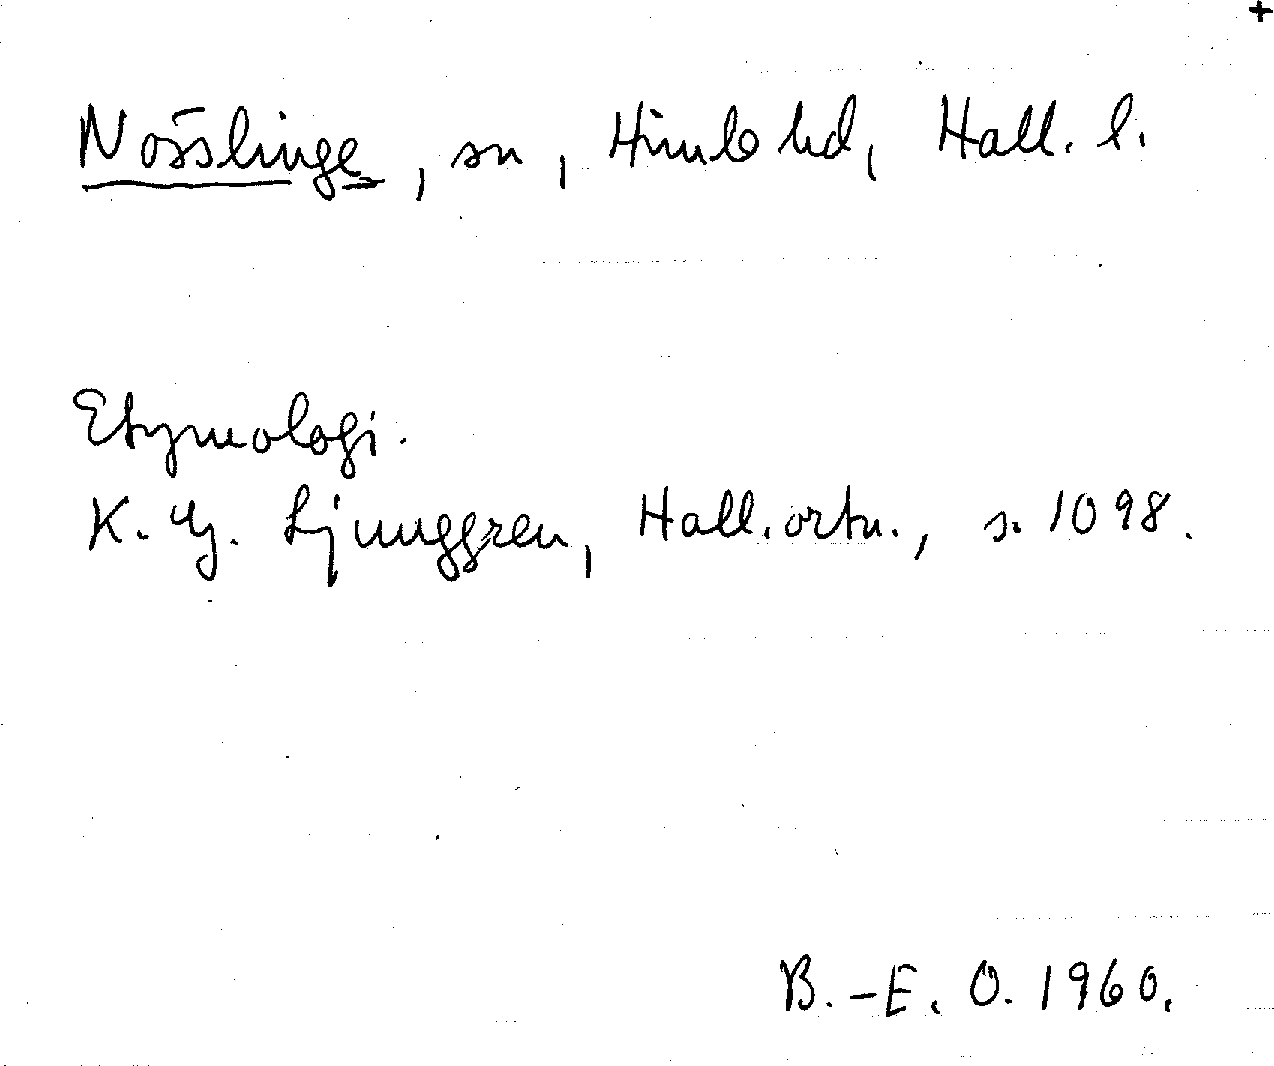 +
Nösslinge, sn, Himle hd, Hall. l.
Etymologi.
K. G. Ljunggren, Hall. ortn., s. 1098.
B.-E. O. 1960.